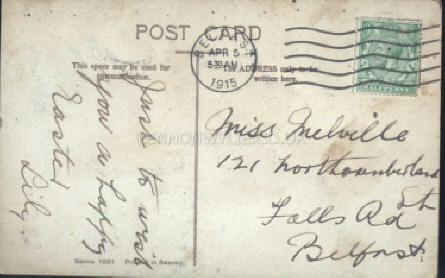 POST CARD
This space may be used for
communication.
The ADDRESS only to be
written here.
BELFAST
APR 5
5.30 AM
1915
HALFPENNY
Just to wish
you a happy
Easter
Lily.
Miss Melville
121 Northumberland
St
Falls Rd
Belfast
Series 1001 Printed in Saxony.